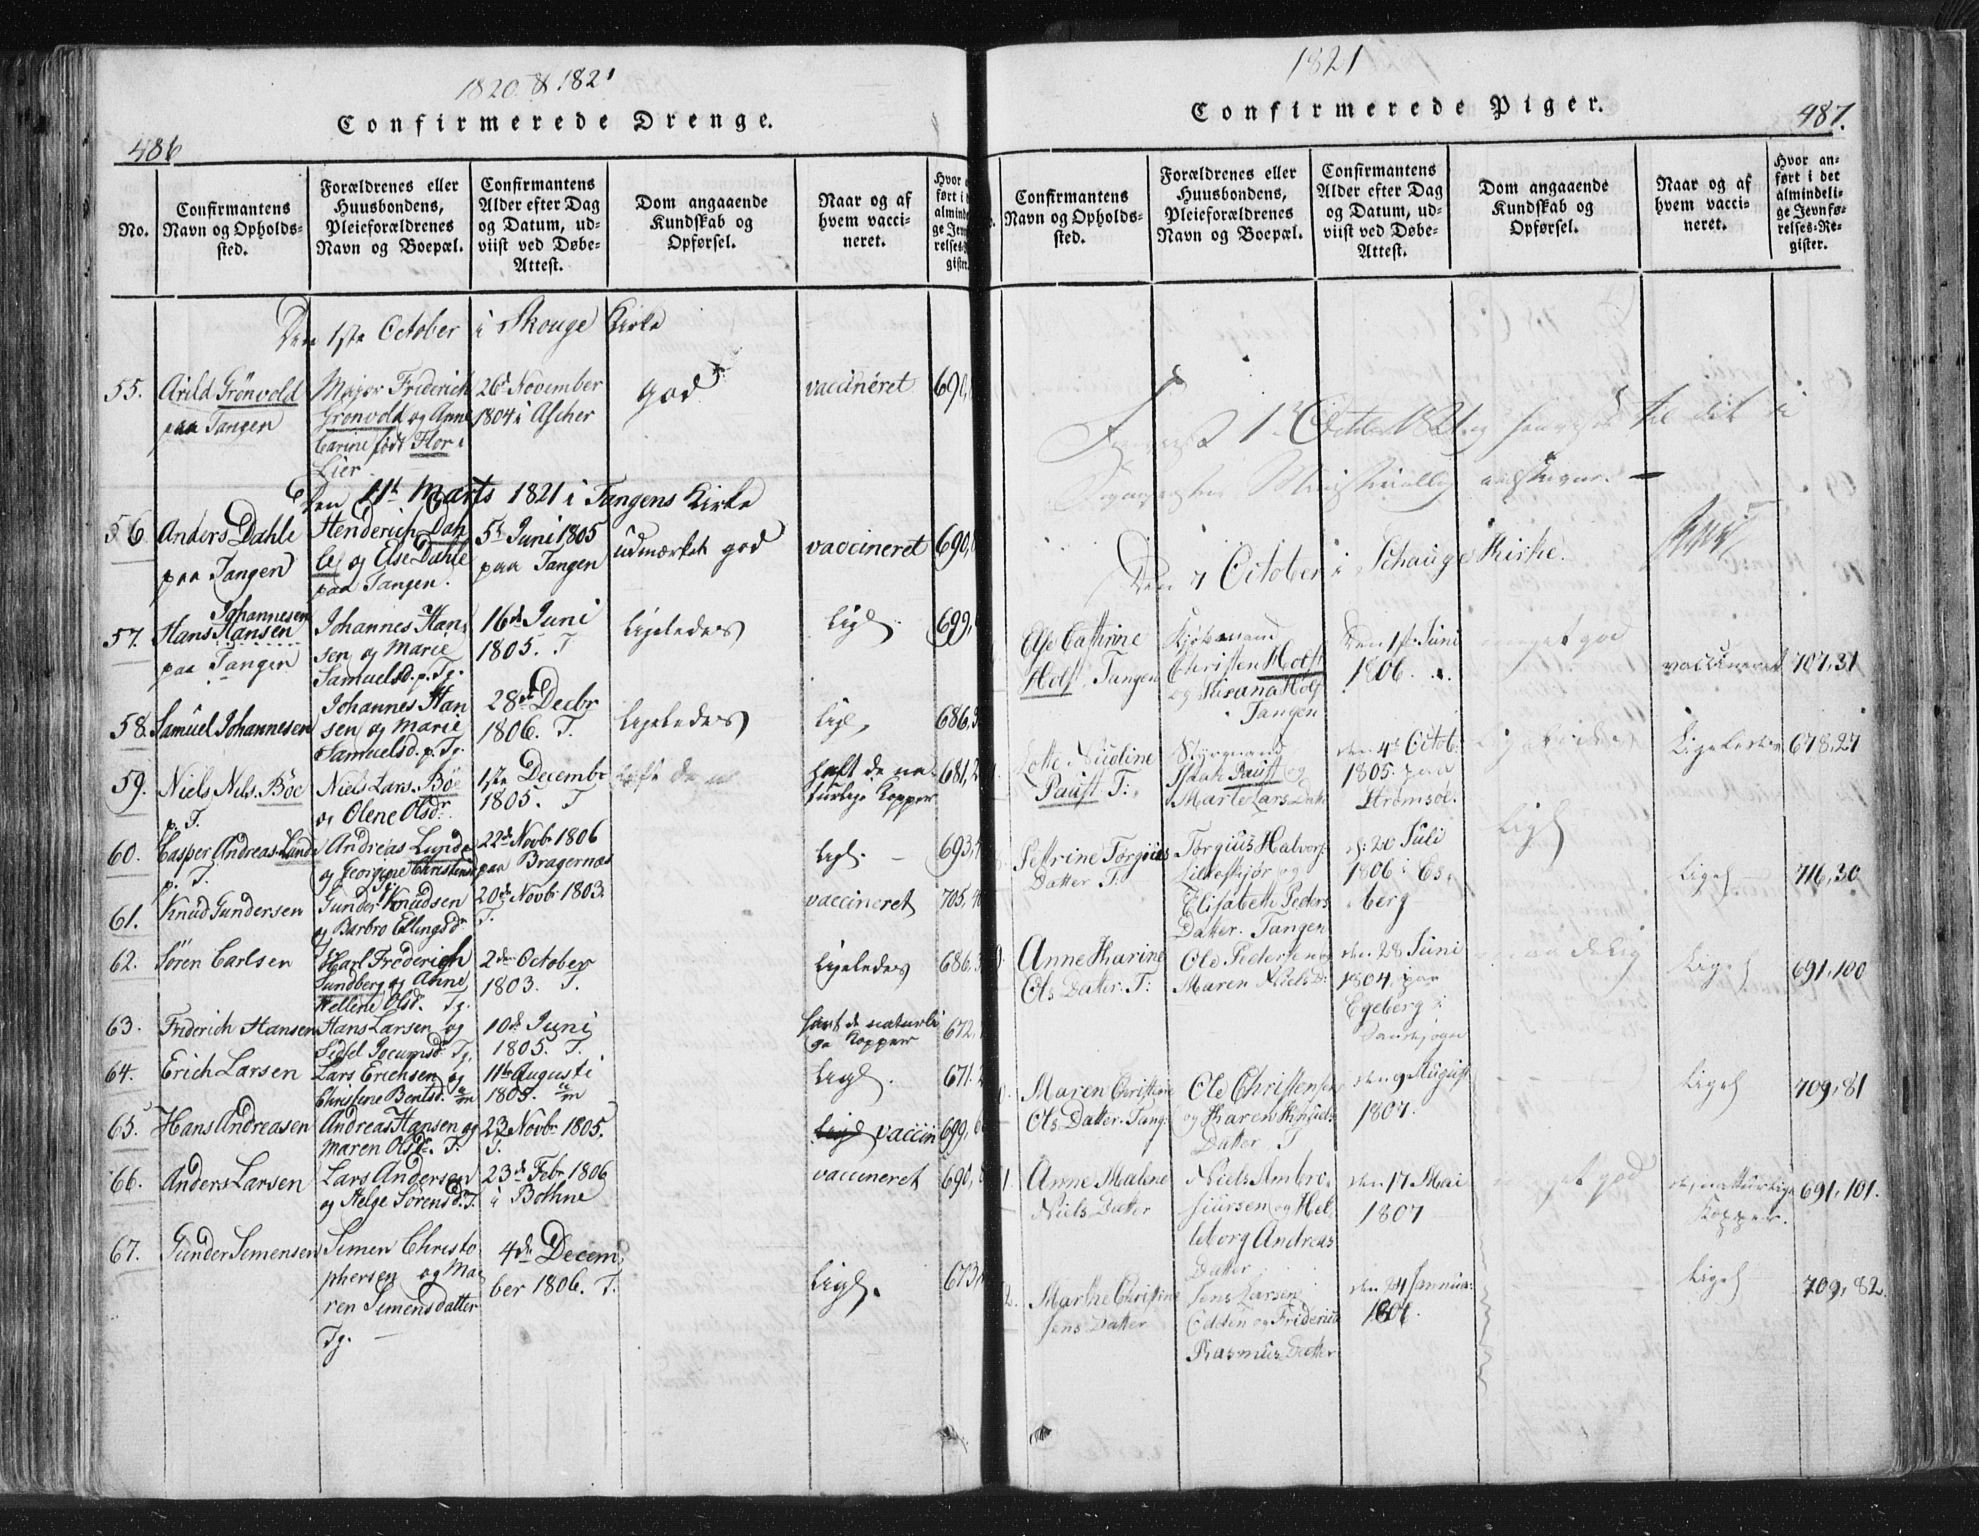 1820 & 1821
Confirmerede Drenge.
486
No.
Confirmantens
Navn og Opholds-
sted.
Forældrenes eller
Huusbondens,
Pleieforældrenes
Navn og Boepæl.
Confirmantens
Alder efter Dag
og Datum, ud-
viist ved Døbe-
Attest.
Dom angaaende
Kundskab og
Opførsel.
Naar og af
hvem vacci-
neret.
Den 1ste October i Skouge Kirke
55. Arild Grönvold
paa Tangen
Major Friderich
Gronvold og Anne
Carine født Flor i
Lier
26d November
1804 i Ascher
god
vaccinéret
690,
Den 11te Marts 1821 i Tangens Kirke
56. Anders Dahle
paa Tangen
Henderich Dah
le og Else Dahle
paa Tangen.
5te Juni 1805
paa Tangen
udmærket god
vaccineret
690,
57. Johannesen
Hans Hansen
paa Tangen
Johannes Han
sen og Marie
Samuelsd. p. Tg.
16de Juni
1805. T
ligeledes
ligl.
699,
58. Samuel Johannesen
Johannes Han
sen og Marie
Samuelsd. p. Tg.
28de Decbr
1806. T.
ligeledes
ligl,
686,
59. Niels Nils. Böe
p. T.
Niels Lars. Böe
og Olene Olsdr.
1ste Decembr
1805. T
haft de na-
turlige Kopper
681,
60. Casper Andreas Lunde
p. T.
Andreas Lunde
og Georgine Christense
22de Novbr 1806
paa Bragernæs
ligl. —
693,
61. Knud Gundersen
Gunder Knudsen
og Barbro Ellingsdr
20de Novbr 1803.
T.
vaccineret
705,
62. Sören Carlsen
Karl Friderich
Sundberg og Anne
Hellene Olsd. Tg.
2de October
1803. T.
ligeledes
686,
63. Friderich Hansen
Hans Larsen og
Sidsel Jocumsdr. Tg.
10de Juni
1805. T.
havt de naturli
ge Kopper
672,
64. Erich Larsen
Lars Erichsen og
Christine Bentsd.
11te Augusti
1805.
ligl.
671.
65. Hans Andreasen
Andreas Hansen og
Maren Olsdr. T.
23 Novbr 1805.
T.
ligl vaccin
699,
66. Anders Larsen
Lars Andersen
og Helge Sörensd. T.
23de Febr 1806
i Bothne
vaccineret
690,
67. Gunder Simensen
Simen Christo
phersen og Ma
ren Simensdatter
Tg. —
4de Decem
ber 1806. T.
ligl.
673,
1821
Confirmerede Piger.
487.
Confirmantens
Navn og Opholds-
sted.
Forældrenes eller
Huusbondens,
Pleieforældrenes
Navn og Boepæl.
Confirmantens
Alder efter Dag
og Datum, ud-
viist ved Døbe-
Attest.
Dom angaaende
Kundskab og
Opførsel.
Naar og af
hvem vacci-
neret.
Hvor an-
ført i det
almindeli-
ge Jevnfø-
relses-Re-
gister.
1te October 1821 til det i
Den 7 October i Schouge Kirke.
Else Cathrine
Holst, Tangen
Kjøbmand
Christen Holst
og Holst
Tangen
Den 1ste Juni
1806.
meget god
vaccineret
707,31
Lotte Nicoline
Paust T:
Styrmand
Isach Paust og
Marte Lars Datter
den 4de Octob:
1805. paa
Strömsöe.
Ligeledes
678,27
Pettrine Torgius
Datter T:
Torgius Halvors.
og
Elisabeth Peders
Datter. Tangen
d: 20 Juli
1806 i Es,
berg
Ligel
Ligel
716,30
Anne Kharine
Ols Datter. T:
Ole Pedersen og
Maren Niels D:
den 28 Juni
1804, paa
Egeberg i
maadelig
Ligel
691,100
Maren Christine
Ols Datter. Tang:
Ole Christensen
og Karen
Datter T
den 9 August
1807.
Ligel
709,81
Anne Malene
Niels Datter
Niels Ambro,
siursen og Hel,
leborg Andreas
Datter
den 17 Mai
1807
meget god
de naturlige
Kopper.
691,101.
Marthe Christine
Jens Datter
Jens Larsen
Odden og Friderica
Rasmus Datter
den 24 Januar:
Ligel
709,82.